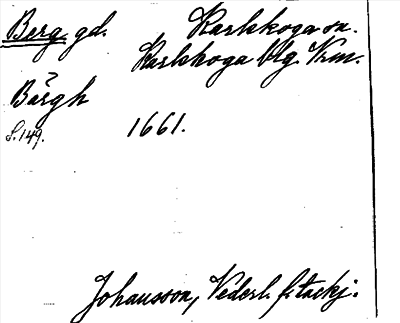 Berg gd. Karlskoga sn.
Karlskoga blg. Vrm.
Bärgh
S. 149. 1661.
Johansson, Vederl. f. tackj.